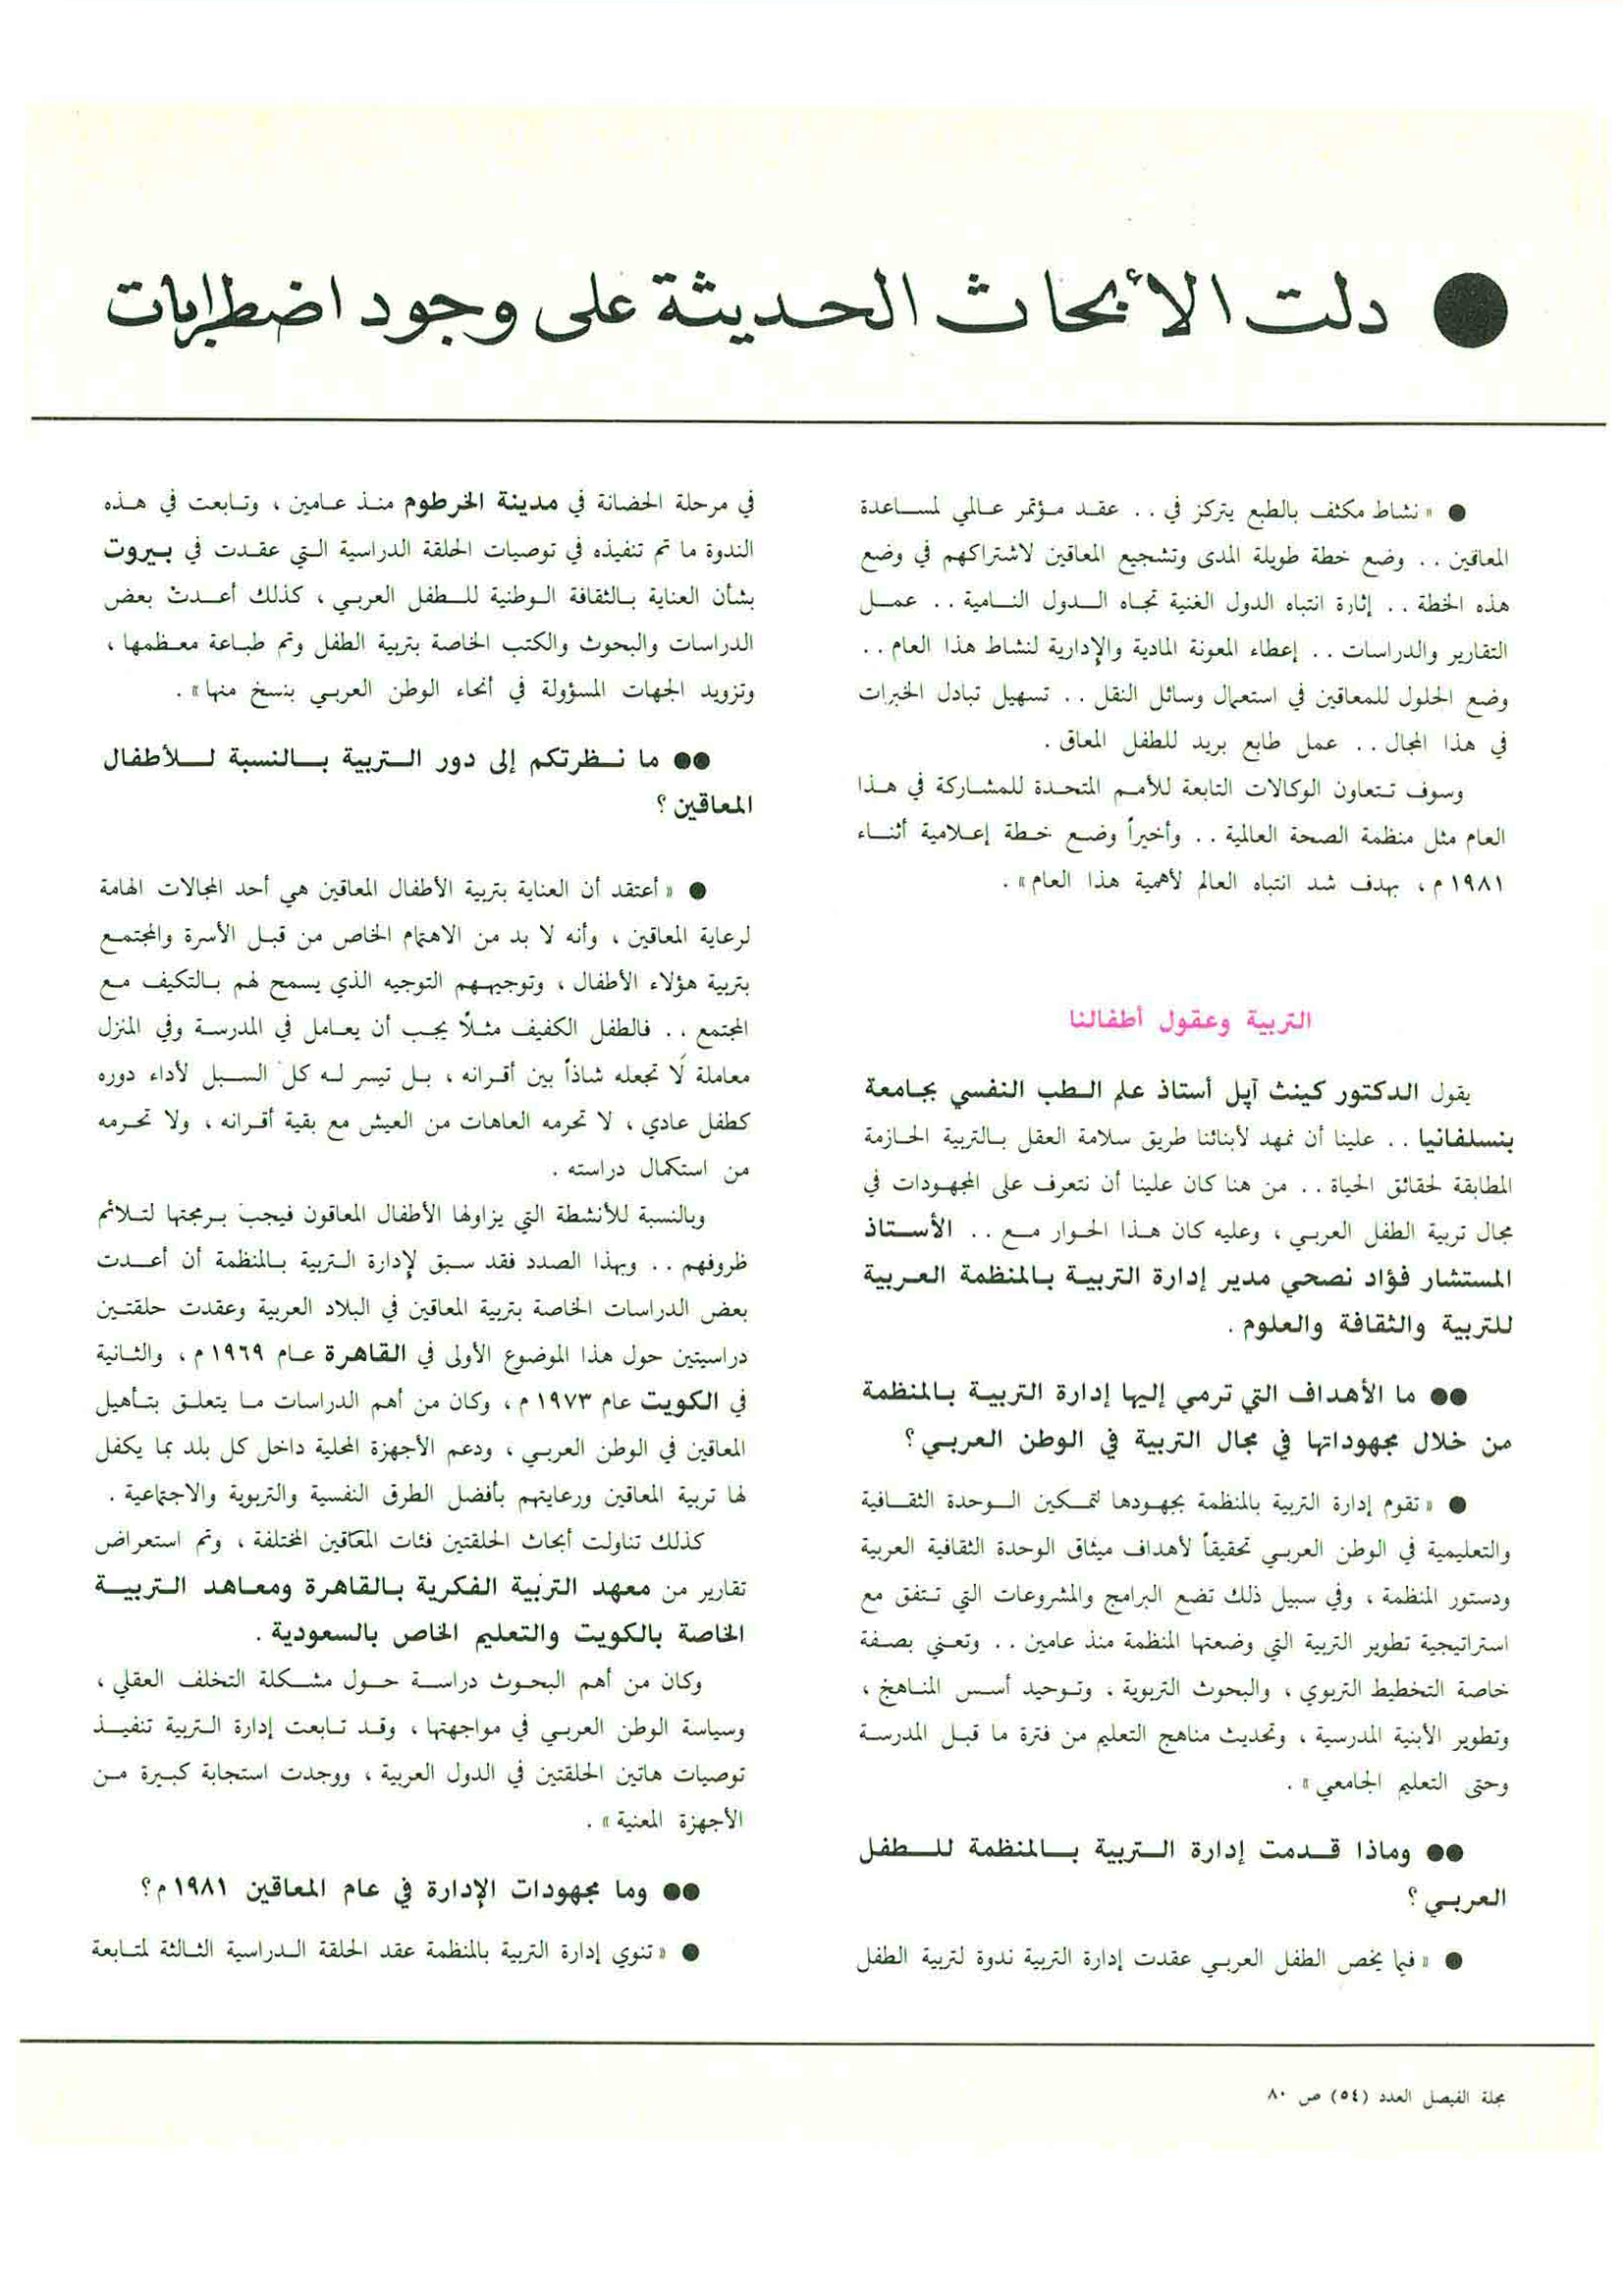 ● دلت الأبحاث الحديثة على وجود اضطرابات
● « نشاط مكثف بالطبع يتركز في . . عقد مؤتمر عالمي لمساعدة
المعاقين . . وضع خطة طويلة المدى وتشجيع المعاقين لاشتراكهم في وضع
هذه الخطة . . إثارة انتباه الدول الغنية تجاه الدول النامية . . عمل
التقارير والدراسات . . إعطاء المعونة المادية والإدارية لنشاط هذا العام . .
وضع الحلول للمعاقين في استعمال وسائل النقل . . تسهيل تبادل الخبرات
في هذا المجال . . عمل طابع بريد للطفل المعاق .
وسوف تتعاون الوكالات التابعة للأمم المتحدة للمشاركة في هذا
العام مثل منظمة الصحة العالمية . . وأخيراً وضع خطة إعلامية أثناء
١٩٨١ م ، بهدف شد انتباه العالم لأهمية هذا العام » .
التربية وعقول أطفالنا
يقول الدكتور كينث آپل أستاذ علم الطب النفسي بجامعة
بنسلفانيا . . علينا أن نمهد لأبنائنا طريق سلامة العقل بالتربية الحازمة
المطابقة لحقائق الحياة . . من هنا كان علينا أن نتعرف على المجهودات في
مجال تربية الطفل العربي ، وعليه كان هذا الحوار مع . . الأستاذ
المستشار فؤاد نصحي مدير إدارة التربية بالمنظمة العربية
للتربية والثقافة والعلوم .
●● ما الأهداف التي ترمي إليها إدارة التربية بالمنظمة
من خلال مجهوداتها في مجال التربية في الوطن العربي ؟
● « تقوم إدارة التربية بالمنظمة بجهودها لتمكين الوحدة الثقافية
والتعليمية في الوطن العربي تحقيقاً لأهداف ميثاق الوحدة الثقافية العربية
ودستور المنظمة ، وفي سبيل ذلك تضع البرامج والمشروعات التي تتفق مع
استراتيجية تطوير التربية التي وضعتها المنظمة منذ عامين . . وتعني بصفة
خاصة التخطيط التربوي ، والبحوث التربوية ، وتوحيد أسس المناهج ،
وتطوير الأبنية المدرسية ، وتحديث مناهج التعليم من فترة ما قبل المدرسة
وحتى التعليم الجامعي » .
●● وماذا قدمت إدارة التربية بالمنظمة للطفل
العربي ؟
● « فيما يخص الطفل العربي عقدت إدارة التربية ندوة لتربية الطفل
في مرحلة الحضانة في مدينة الخرطوم منذ عامين ، وتابعت في هذه
الندوة ما تم تنفيذه في توصيات الحلقة الدراسية التي عقدت في بيروت
بشأن العناية بالثقافة الوطنية للطفل العربي ، كذلك أعدت بعض
الدراسات والبحوث والكتب الخاصة بتربية الطفل وتم طباعة معظمها ،
وتزويد الجهات المسؤولة في أنحاء الوطن العربي بنسخ منها » .
●● ما نظرتكم إلى دور التربية بالنسبة للأطفال
المعاقين ؟
● « أعتقد أن العناية بتربية الأطفال المعاقين هي أحد المجالات الهامة
لرعاية المعاقين ، وأنه لا بد من الاهتمام الخاص من قبل الأسرة والمجتمع
بتربية هؤلاء الأطفال ، وتوجيههم التوجيه الذي يسمح لهم بالتكيف مع
المجتمع . . فالطفل الكفيف مثلاً يجب أن يعامل في المدرسة وفي المنزل
معاملة لَا تجعله شاذاً بين أقرانه ، بل تيسر له كل السبل لأداء دوره
كطفل عادي ، لا تحرمه العاهات من العيش مع بقية أقرانه ، ولا تحرمه
من استكمال دراسته .
وبالنسبة للأنشطة التي يزاولها الأطفال المعاقون فيجب برمجتها لتلائم
ظروفهم . . وبهذا الصدد فقد سبق لإدارة التربية بالمنظمة أن أعدت
بعض الدراسات الخاصة بتربية المعاقين في البلاد العربية وعقدت حلقتين
دراسيتين حول هذا الموضوع الأولى في القاهرة عام ١٩٦٩ م ، والثانية
في الكويت عام ١٩٧٣ م ، وكان من أهم الدراسات ما يتعلق بتأهيل
المعاقين في الوطن العربي ، ودعم الأجهزة المحلية داخل كل بلد بما يكفل
لها تربية المعاقين ورعايتهم بأفضل الطرق النفسية والتربوية والاجتماعية .
كذلك تناولت أبحاث الحلقتين فئات المعاقين المختلفة ، وتم استعراض
تقارير من معهد التربية الفكرية بالقاهرة ومعاهد التربية
الخاصة بالكويت والتعليم الخاص بالسعودية .
وكان من أهم البحوث دراسة حول مشكلة التخلف العقلي ،
وسياسة الوطن العربي في مواجهتها ، وقد تابعت إدارة التربية تنفيذ
توصيات هاتين الحلقتين في الدول العربية ، ووجدت استجابة كبيرة من
الأجهزة المعنية » .
●● وما مجهودات الإدارة في عام المعاقين ١٩٨١ م؟
● « تنوي إدارة التربية بالمنظمة عقد الحلقة الدراسية الثالثة لمتابعة
مجلة الفيصل العدد (٥٤) ص ٨٠